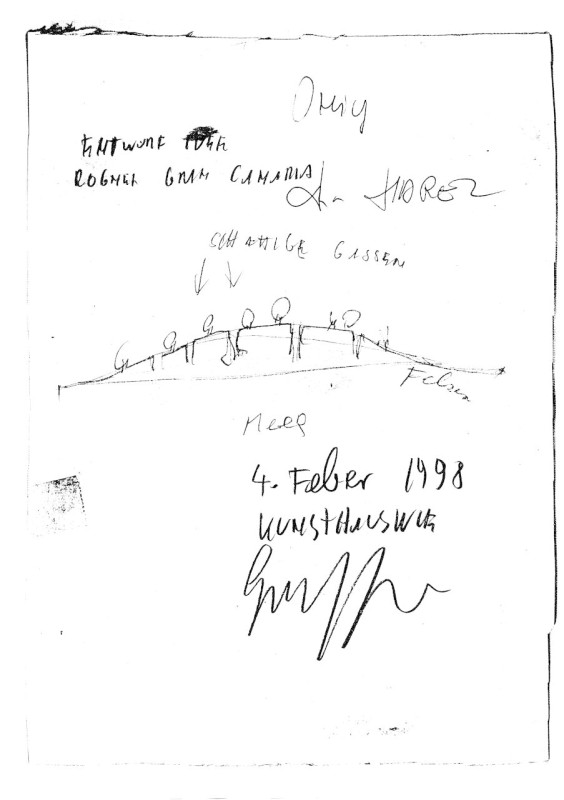 Orig
ENTWURF IDEE
ROGNER GRAN CANARIA
SCHATTIGE GASSEN
Felsen
Meer
4. Feber 1998
KUNSTHAUSWIEN